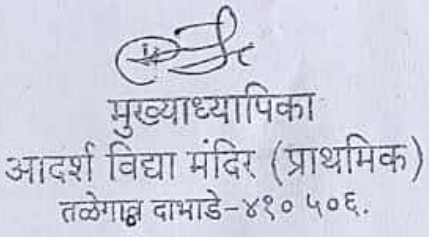 मुख्याध्यापिका
आदर्श विद्या मंदिर (प्राथमिक)
तळेगाव दाभाडे-४१० ५०६.